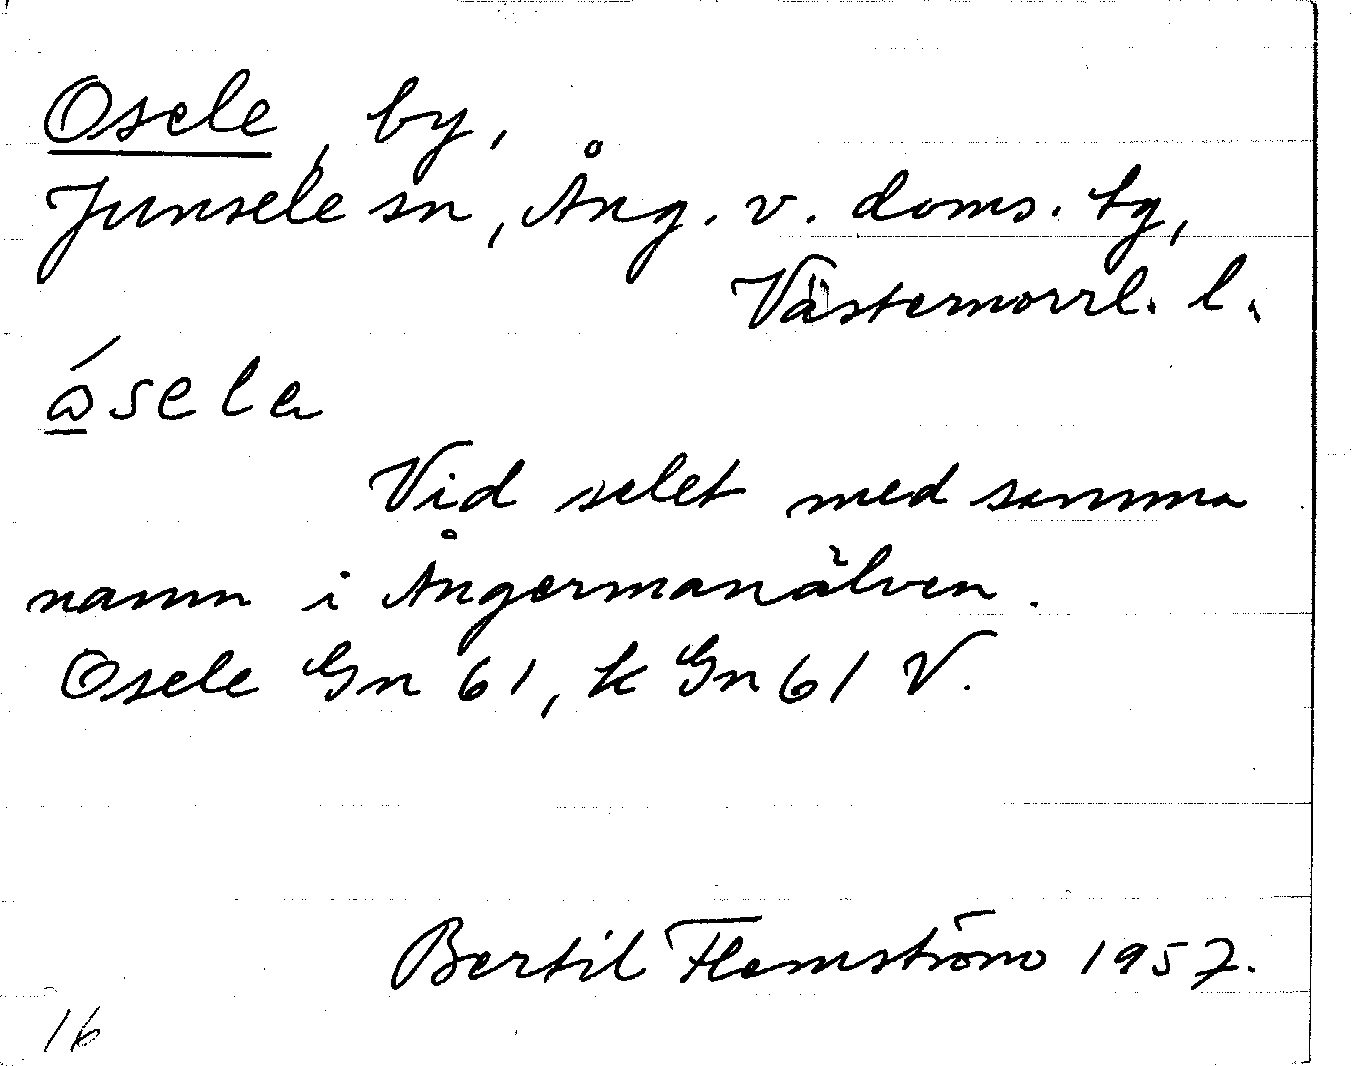 Osele, by,
Junsele sn, Ång. v. doms. tg,
Västernorrl. l.
ósela
Vid selet med samma
namn i Ångermanälven.
Osele Gn 61, k Gn 61 V.
Bertil Flemström 1957.
16